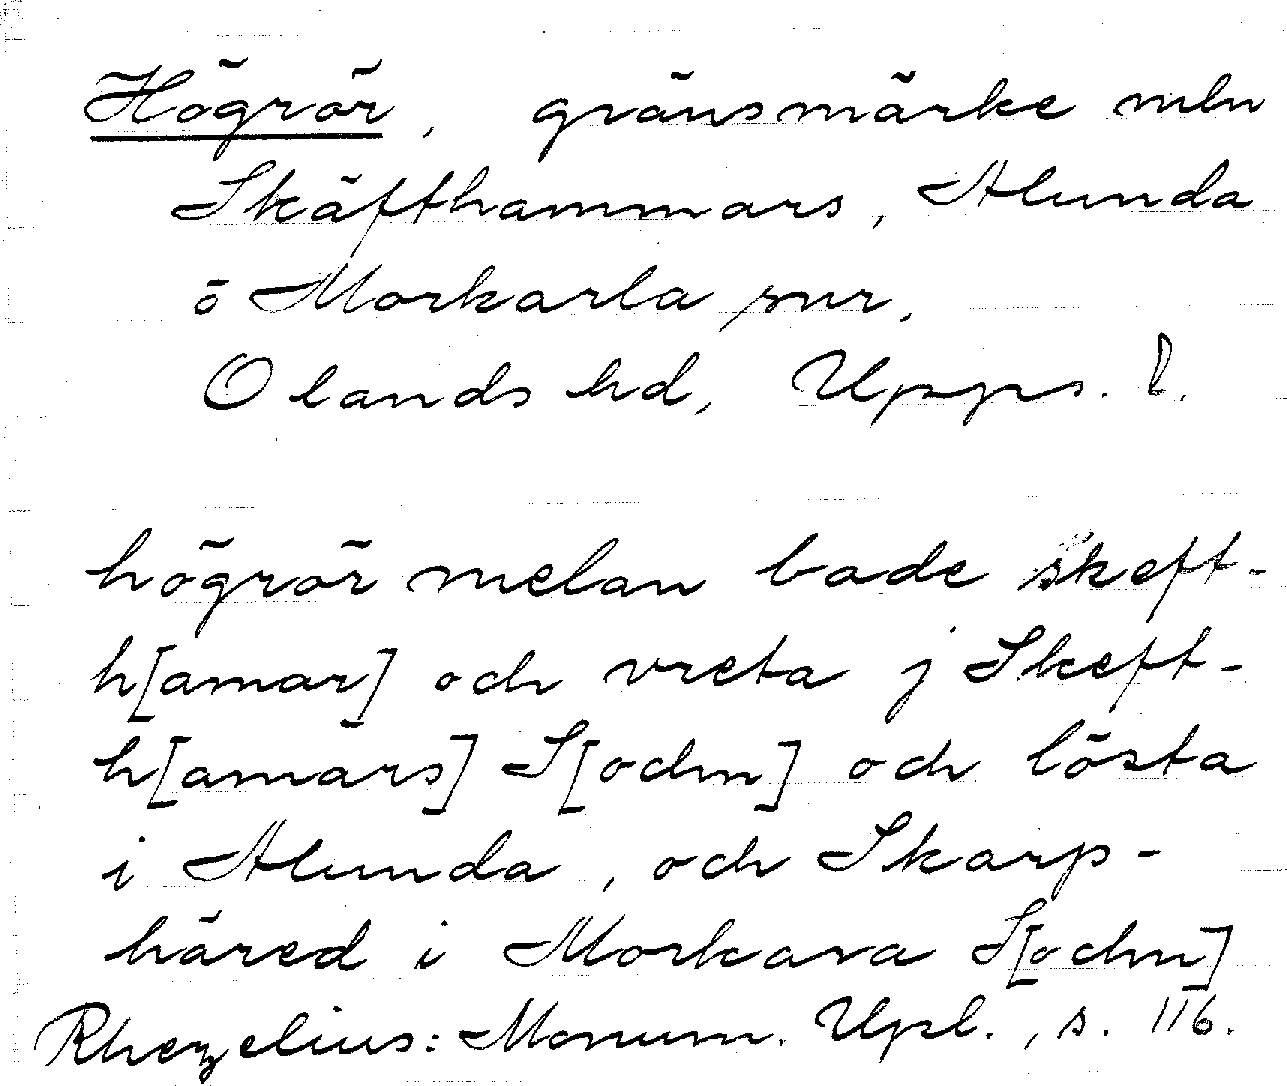 Högrör, gränsmärke mln
Skäfthammars, Alunda
o Morkarla snr,
Olands hd, Upps. l.
högrör melan bade skeft-
h[amar] och vreta j Skeft-
h[amars] S[ochn] och lösta
i Alunda, och Skarp-
häred i Morkara S[ochn]
Rhezelius: Monum. Upl., s. 116.